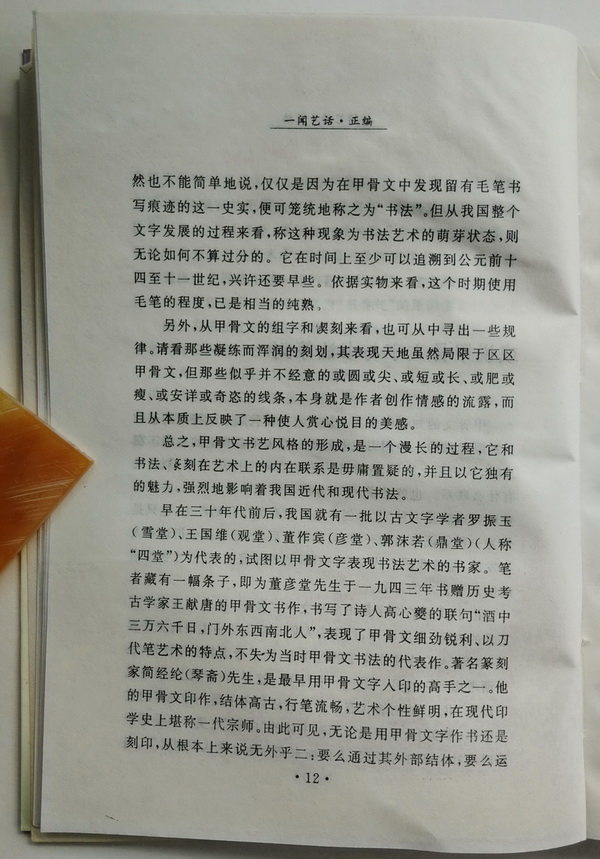 一闻艺话·正编
然也不能简单地说，仅仅是因为在甲骨文中发现留有毛笔书
写痕迹的这一史实，便可笼统地称之为“书法”。但从我国整个
文字发展的过程来看，称这种现象为书法艺术的萌芽状态，则
无论如何不算过分的。它在时间上至少可以追溯到公元前十
四至十一世纪，兴许还要早些。依据实物来看，这个时期使用
毛笔的程度，已是相当的纯熟。
另外，从甲骨文的组字和锲刻来看，也可从中寻出一些规
律。请看那些凝练而浑润的刻划，其表现天地虽然局限于区区
甲骨文，但那些似乎并不经意的或圆或尖、或短或长、或肥或
瘦、或安详或奇恣的线条，本身就是作者创作情感的流露，而
且从本质上反映了一种使人赏心悦目的美感。
总之，甲骨文书艺风格的形成，是一个漫长的过程，它和
书法、篆刻在艺术上的内在联系是毋庸置疑的，并且以它独有
的魅力，强烈地影响着我国近代和现代书法。
早在三十年代前后，我国就有一批以古文字学者罗振玉
（雪堂）、王国维（观堂）、董作宾（彦堂）、郭沫若（鼎堂）（人称
“四堂”）为代表的，试图以甲骨文字表现书法艺术的书家。笔
者藏有一幅条子，即为董彦堂先生于一九四三年书赠历史考
古学家王献唐的甲骨文书作，书写了诗人高心夔的联句“酒中
三万六千日，门外东西南北人”，表现了甲骨文细劲锐利、以刀
代笔艺术的特点，不失为当时甲骨文书法的代表作。著名篆刻
家简经纶（琴斋）先生，是最早用甲骨文字入印的高手之一。他
的甲骨文印作，结体高古，行笔流畅，艺术个性鲜明，在现代印
学史上堪称一代宗师。由此可见，无论是用甲骨文字作书还是
刻印，从根本上来说无外乎二：要么通过其外部结体，要么运
·12·